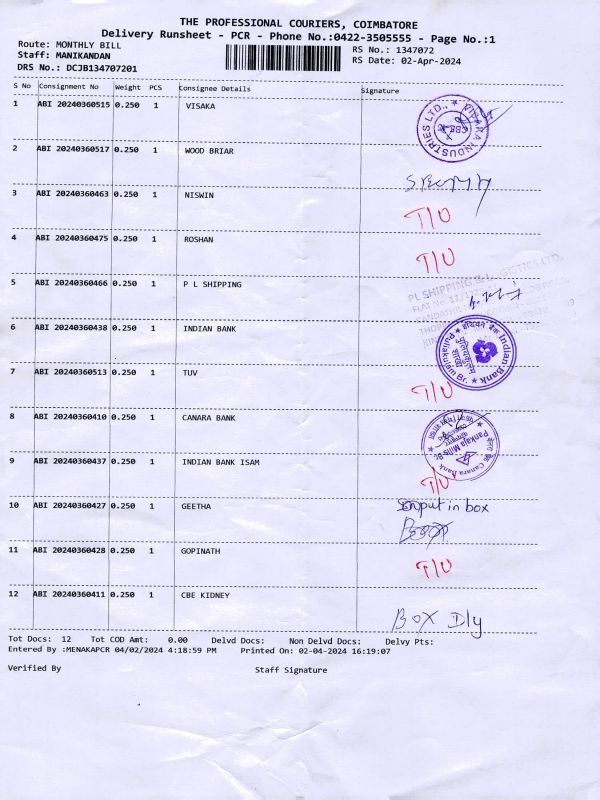 THE PROFESSIONAL COURIERS, COIMBATORE
Delivery Runsheet - PCR - Phone No.:0422-3505555 - Page No.:1
Route: MONTHLY BILL RS No.: 1347072
Staff: MANIKANDAN RS Date: 02-Apr-2024
DRS No.: DCJB134707201
S No Consignment No Weight PCS Consignee Details Signature
1 ABI 20240360515 0.250 1 VISAKA
INDUSTRIES LTD.,
CBE
2 ABI 20240360517 0.250 1 WOOD BRIAR
3 ABI 20240360463 0.250 1 NISWIN
T/U
4 ABI 20240360475 0.250 1 ROSHAN
T/U
5 ABI 20240360466 0.250 1 P L SHIPPING
PL SHIPPING & LOGISTICS LTD,
6 ABI 20240360438 0.250 1 INDIAN BANK
इंडियन बैंक Indian Bank
Puliakulam Br.
7 ABI 20240360513 0.250 1 TUV
T/U
8 ABI 20240360410 0.250 1 CANARA BANK
Canara Bank
Pankaja Mills Br.
9 ABI 20240360437 0.250 1 INDIAN BANK ISAM
T/U
10 ABI 20240360427 0.250 1 GEETHA
input in box
11 ABI 20240360428 0.250 1 GOPINATH
T/U
12 ABI 20240360411 0.250 1 CBE KIDNEY
BOX Dly
Tot Docs: 12 Tot COD Amt: 0.00 Delvd Docs: Non Delvd Docs: Delvy Pts:
Entered By :MENAKAPCR 04/02/2024 4:18:59 PM Printed On: 02-04-2024 16:19:07
Verified By Staff Signature